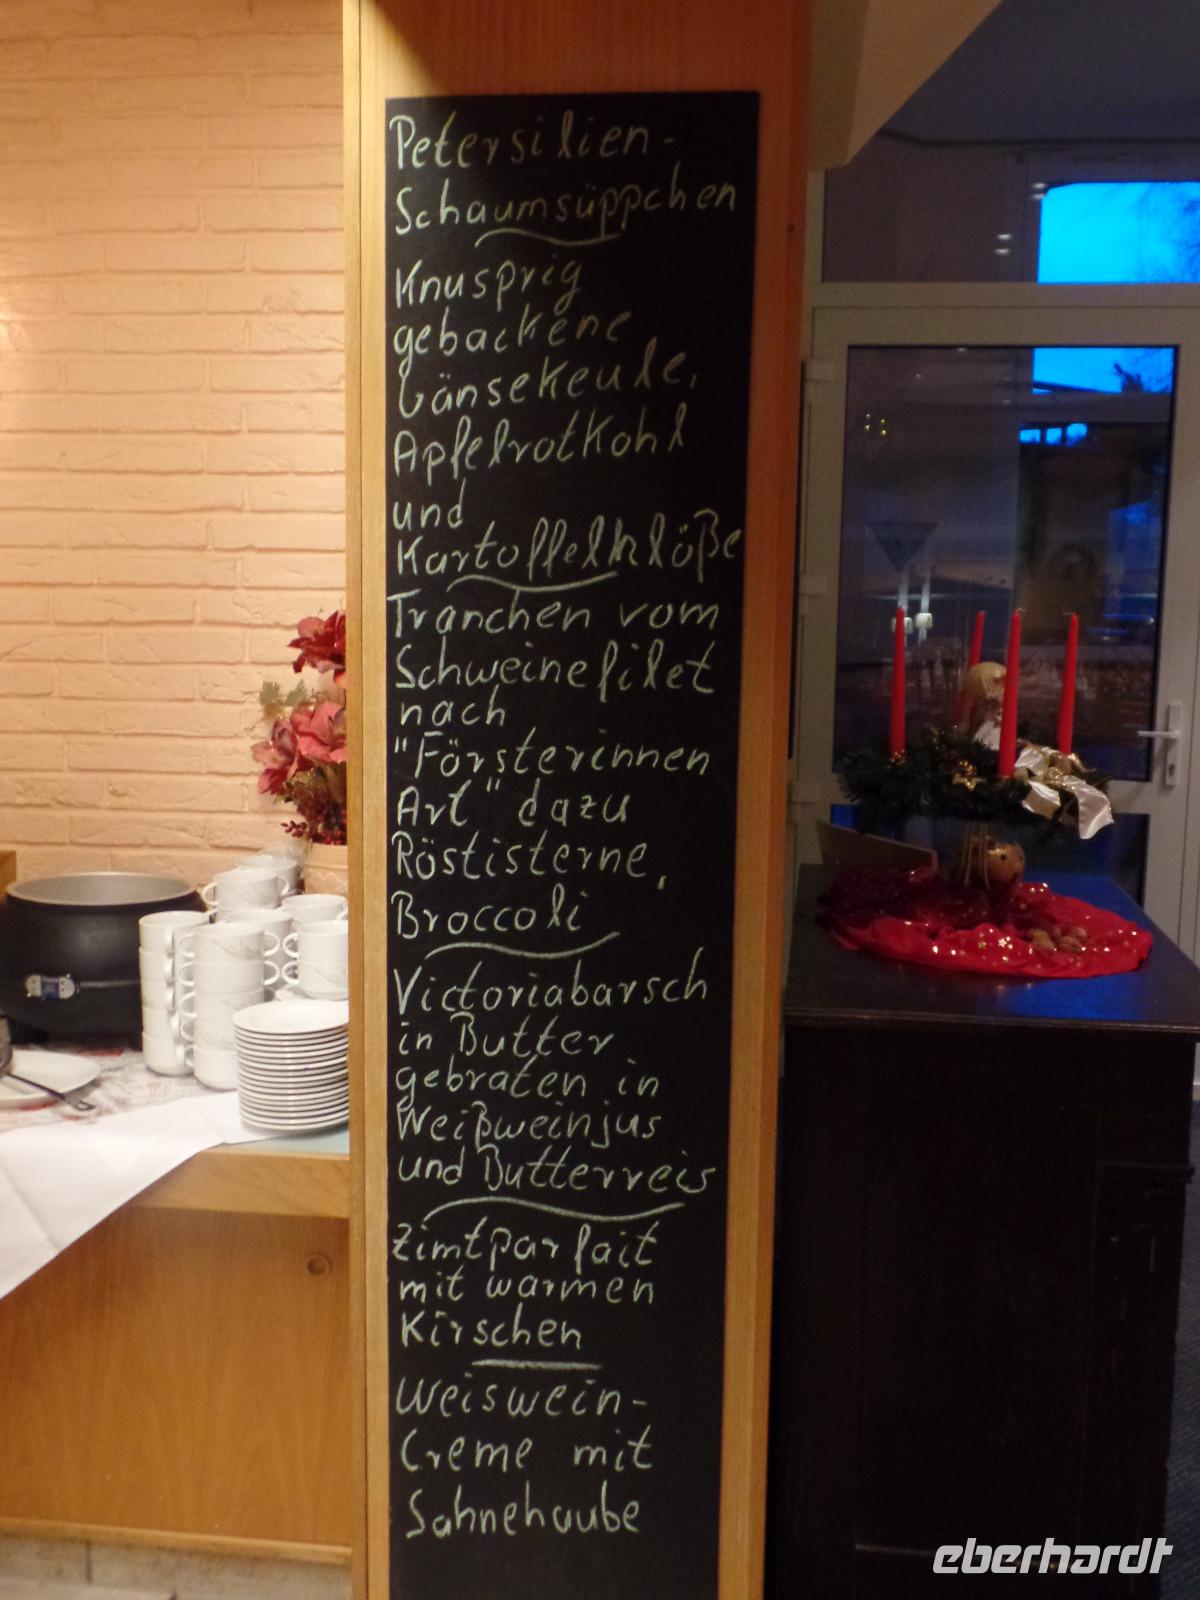 Petersilien-
Schaumsüppchen
Knusprig
gebackene
Gänsekeule,
Apfelrotkohl
und
Kartoffelklöße
Tranchen vom
Schweinefilet
nach
"Försterinnen
Art" dazu
Röstisterne,
Broccoli
Victoriabarsch
in Butter
gebraten in
Weißweinjus
und Butterreis
Zimtparfait
mit warmen
Kirschen
Weiswein-
Creme mit
Sahnehaube
eberhardt